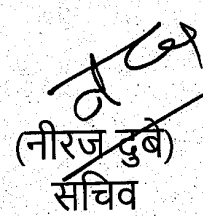 (नीरज दुबे)
सचिव